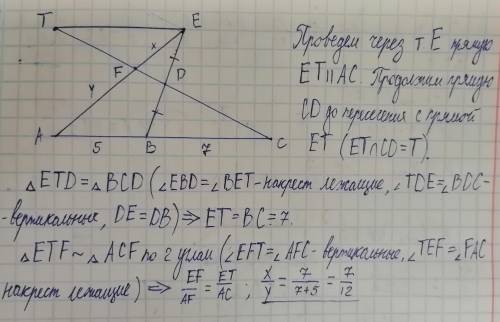 T E
x
F D
y
A B C
5 7
Проведем через т. E прямую
ET∥AC. Продолжим прямую
CD до пересечения с прямой
ET (ET∩CD=T).
△ETD=△BCD (∠EBD=∠BET-накрест лежащие, ∠TDE=∠BDC-
-вертикальные, DE=DB) ⇒ ET=BC=7.
△ETF~△ACF по 2 углам (∠EFT=∠AFC-вертикальные, ∠TEF=∠FAC
накрест лежащие) ⇒ EF/AF = ET/AC ; x/y = 7/(7+5) = 7/12